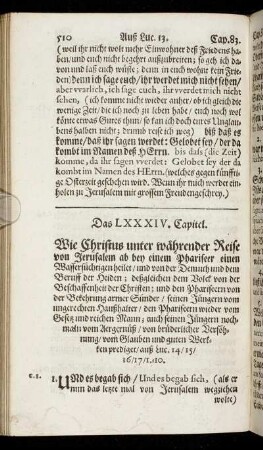 510 Auß Luc. 13. Cap. 83.
(weil ihr nicht wolt mehr Einwohner deß Friedens ha-
ben/und euch nicht begehrt außzubreiten; so geh ich da-
von und laß euch wüste; denn in euch wohnt kein Frie-
den) denn ich sage euch/ ihr werdet mich nicht sehen/
aber warlich, ich sage euch, ihr werdet mich nicht
sehen, (ich komme nicht wieder anher/ ob ich gleich die
wenige Zeit/ die ich noch zu leben habe/ euch noch wol
könte etwas Gutes thun/ so kan ich doch eures Unglau-
bens halben nicht; drumb reise ich weg) biß daß es
komme/ daß ihr sagen werdet: Gelobet sey/ der da
kombt im Namen deß HErrn. bis daß (die Zeit)
komme, da ihr sagen werdet: Gelobet sey der da
kombt im Namen des HErrn. (welches gegen künfftige
Osterzeit geschehen wird. Wenn ihr mich werdet ein-
holen zu Jerusalem mit grossem Freudengeschrey.)
Das LXXXIV. Capitel.
Wie Christus unter währender Reise
von Jerusalem ab bey einem Phariseer einen
Wassersüchtigen heilet/ und von der Demuth und dem
Beruff der Heiden; desgleichen dem Volck von der
Beschaffenheit der Christen; und den Phariseern von
der Bekehrung armer Sünder/ seinen Jüngern vom
ungerechten Haußhalter/ den Phariseern wieder vom
Gesetz und reichen Mann; auch seinen Jüngern noch-
maln vom Aergernüß/ von brüderlicher Versöh-
nung/ vom Glauben und guten Wer-
cken prediget/ auß Luc. 14/15/
16/17/1.10.
c.1. 1. UNd es begab sich/ Und es begab sich, (als er
nun das letzte mal von Jerusalem wegziehen
wolte)